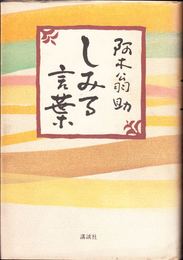 阿木翁助
しみる
言葉
講談社